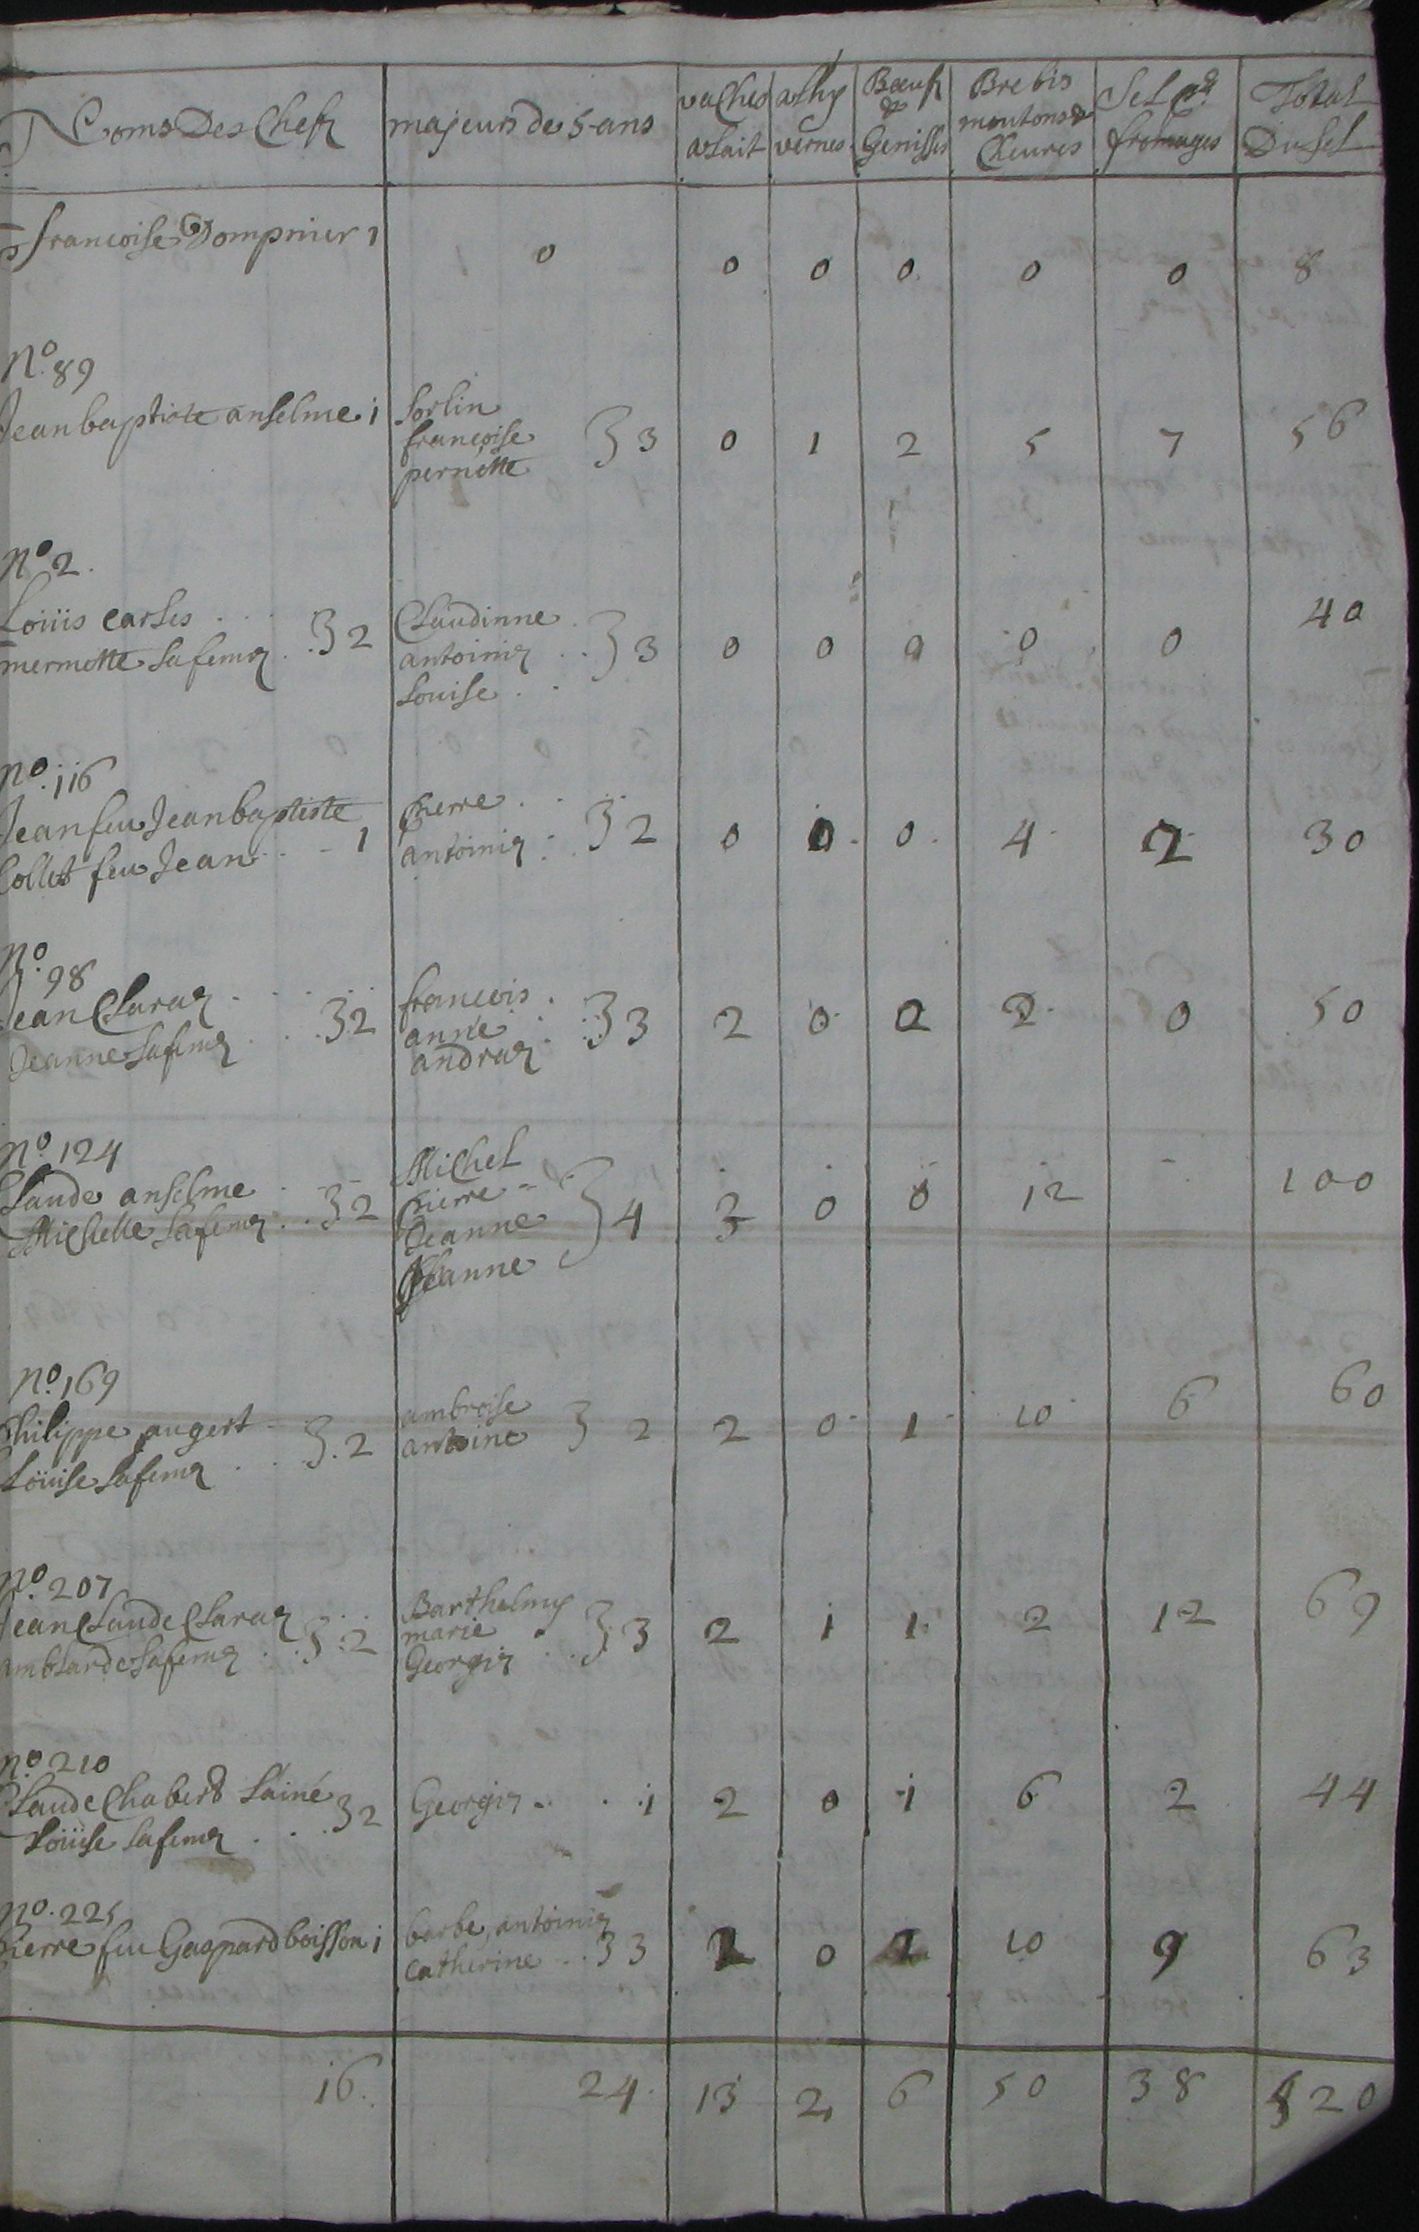 Noms Des Chefz majeurs de 5 ans vaches a Lait a L'hyvernes Boeufz & Genisses Brebis moutons & Cheures Sel pr. fromages Total Du Sel
francoise Dompnier 1 0 0 0 0 0 0 8
No. 89
Jean baptiste anselme 1 Sorlin francoise pernette } 3 0 1 2 5 7 56
No 2.
Loüis carles . . .
mermette Sa feme . . } 2 Claudinne antoinie Louise } 3 0 0 0 0 0 40
No. 116
Jean feu Jean baptiste
Collet feu Jean . . . 1 pierre antoinie } 2 0 0 0 4 2 30
No. 98
Jean Claraz . . .
Jeanne Sa feme . . } 2 francois anne andraz } 3 2 0 0 2 0 50
No 124
Claude anselme
Michelle Sa feme . . } 2 Michel pierre Jeanne Jeanne } 4 3 0 0 12 100
No. 169
Philippe augert
Loüise Sa feme . . } 2 ambroise antoine } 2 2 0 1 10 6 60
No. 207
Jean Claude Claraz
amblarde Sa feme . . } 2 Barthelmy marie Georgie } 3 2 1 1 2 12 69
No. 210
Claude Chabert L'ainé
Loüise Sa feme . . . } 2 Georgie . . . 1 2 0 1 6 2 44
No. 225
pierre feu Gaspard boisson 1 barbe, antoinie catherine . . } 3 2 0 1 10 9 63
16. 24. 13 2 6 50 38 520